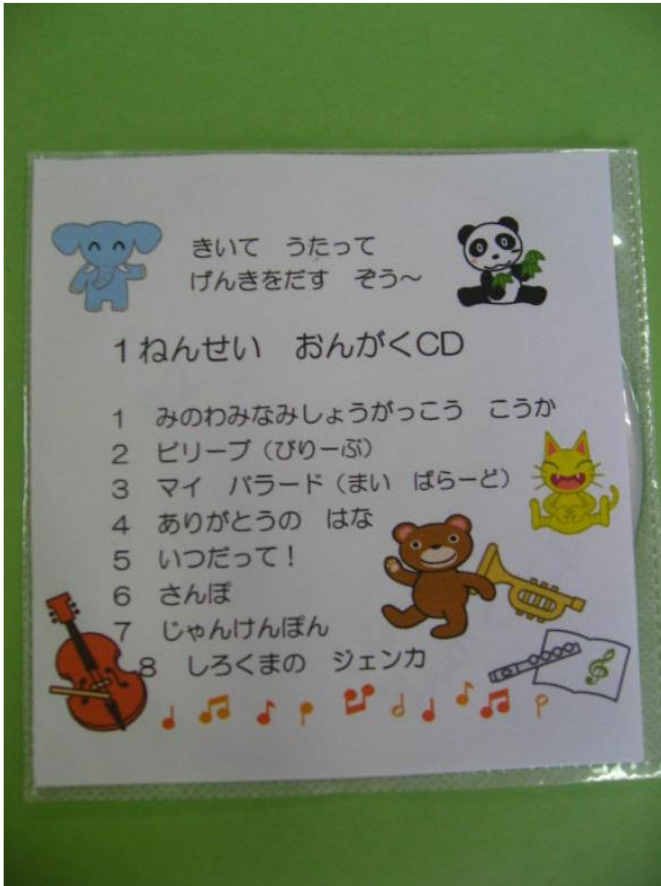 きいて　うたって
げんきをだす　ぞう～
1ねんせい　おんがくCD
1　みのわみなみしょうがっこう　こうか
2　ビリーブ（びりーぶ）
3　マイ　バラード（まい　ばらーど）
4　ありがとうの　はな
5　いつだって！
6　さんぽ
7　じゃんけんぽん
8　しろくまの　ジェンカ